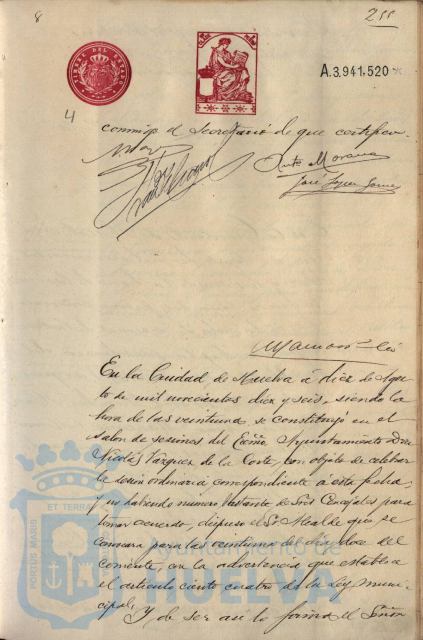 8
255
TIMBRE DEL ESTADO
A.3.941.520
4
conmigo el Secretario de que certifico.
Anto Morano
José López Gómez
En la Ciudad de Huelva á diez de Agos-
to de mil novecientos diez y seis, siendo la
hora de las veintiuna se constituyó en el
Salon de sesiones del Excmo Ayuntamiento Don
Nicolás Vázquez de la Corte, con objeto de celebrar
la sesion ordinaria correspondiente a esta fecha,
y no habiendo numero bastante de Sres Concejales para
tomar acuerdo, dispuso el Sr. Alcalde que se
convocara para las veintiuna del dia doce del
corriente, con la advertencia que establece
el artículo ciento cuatro de la Ley muni-
cipal.
Y de ser asi lo firma el Señor
PORTUS MARIS
ET TERRAE
Ayuntamiento de
HUELVA